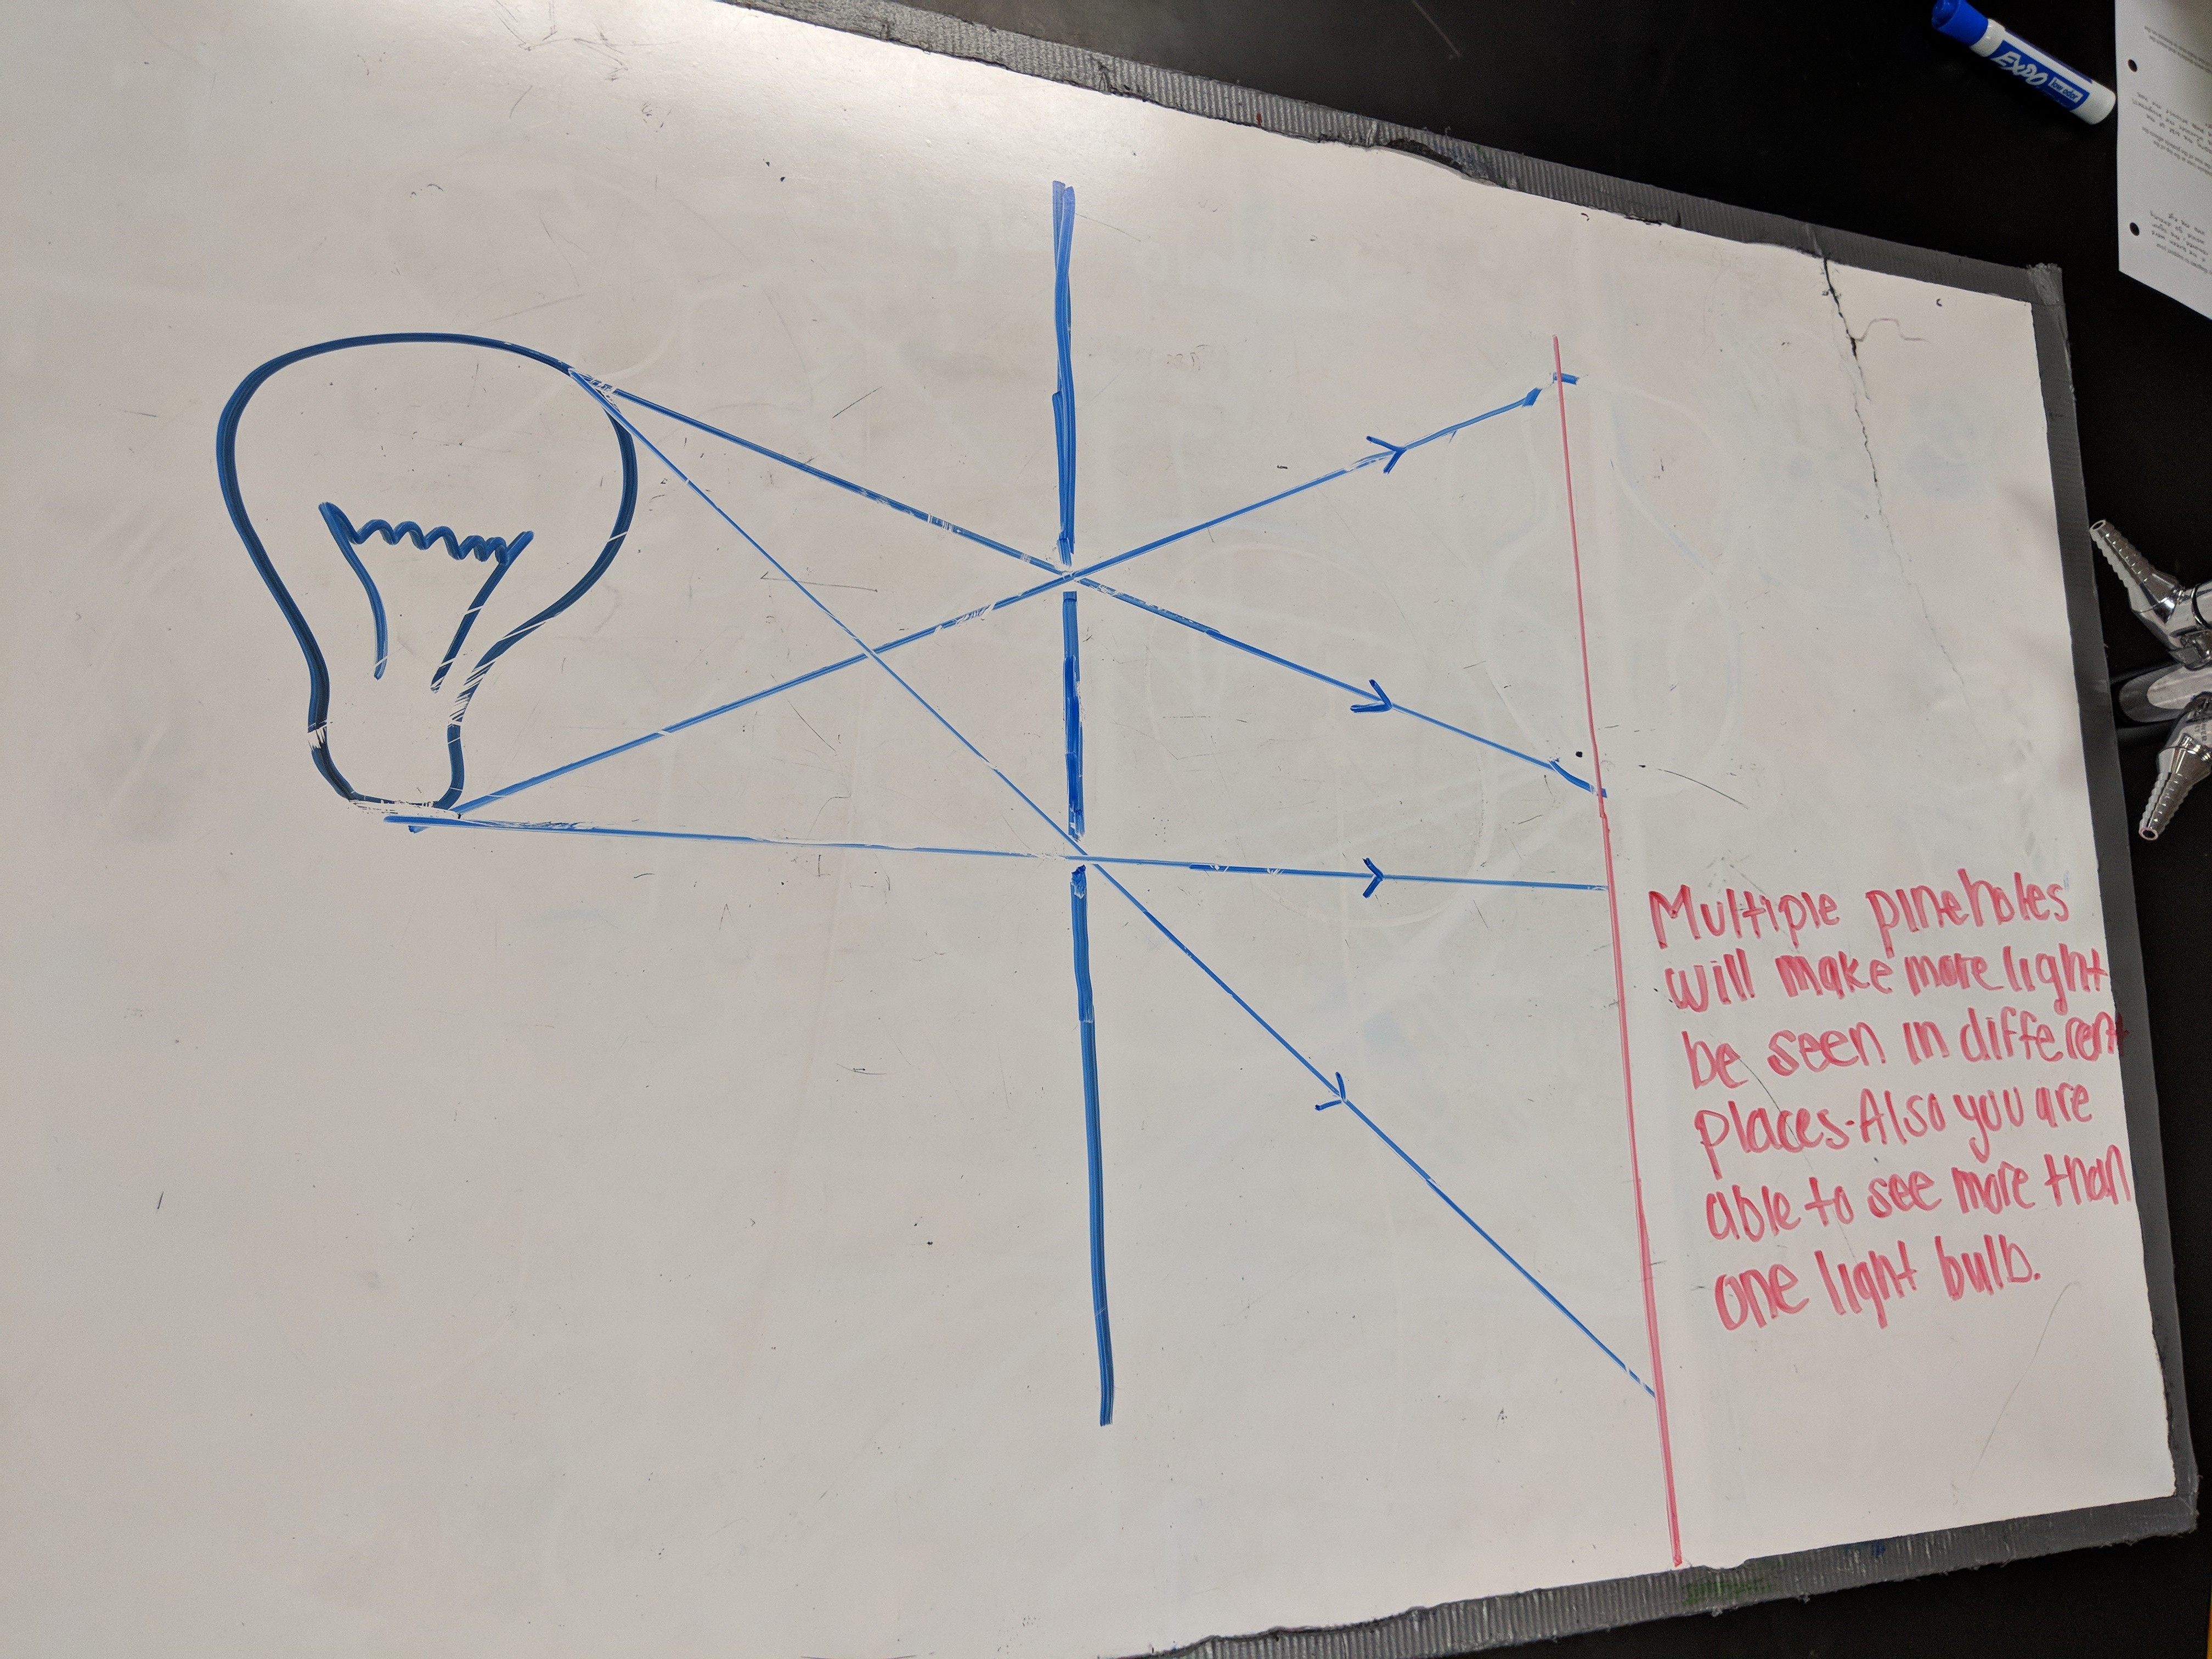 Multiple pineholes
will make more light
be seen in different
places. Also you are
able to see more than
one light bulb.
EXPO
low odor